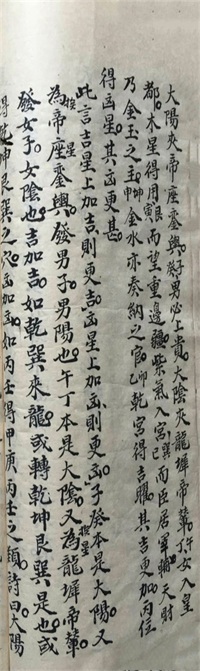 大陽夾帝座鑾輿癸子男必上貴大陰夾龍墀帝輦丁午女入皇
都木星得用寅艮而望重邊疆紫氣入宮巳巽而臣居軍輔天財
乃金玉之主坤申金水亦奏納之官乙卯乾宮得吉曜其吉更加丙位
得凶星其凶更甚
此言吉星上加吉則更吉凶星上加凶則更凶子癸本是大陽又
為帝座鑾輿發男子男陽也午丁本是大陰又為龍墀帝輦
發女子女陰也吉加吉如乾巽來龍或轉乾坤艮巽是也或
得乾坤艮巽之穴凶加凶如丙壬得甲庚丙壬之類詩曰大陽